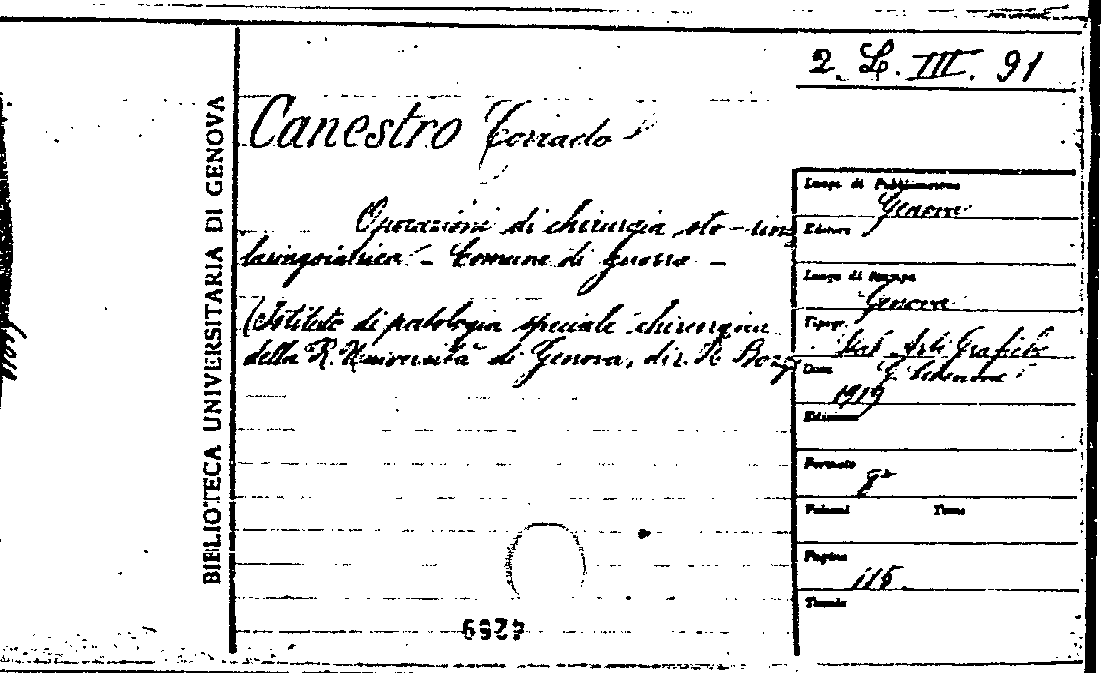 2. L. III. 91
BIBLIOTECA UNIVERSITARIA DI GENOVA
Canestro Corrado
Operazioni di chirurgia oto-rino
laringoiatrica - Comune di guerra -
(Istituto di patologia speciale chirurgica
della R. Università di Genova, dir.
Luogo di Pubblicazione
Genova
Editore
Luogo di Stampa
Genova
Tipogr.
Stab. Arti Grafiche
Data
G.
1919
Edizione
Formato
8°
Volumi Tomo
Pagine
115
Tavole